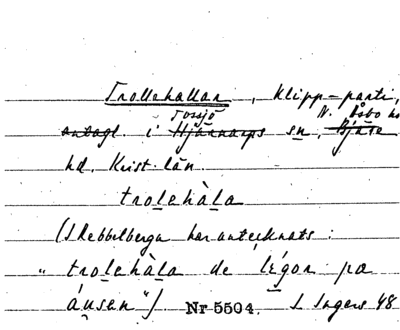 Trollehallar, Klipp-parti,
Tossjö N. Åsbo hd
antagl. i Hjärnarps sn, Bjäre
hd. Krist. län.
trolehàla
(I Rebbelberga har antecknats:
"trolehàla de légor pa
áusen") Nr 5504. I. Ingers 48